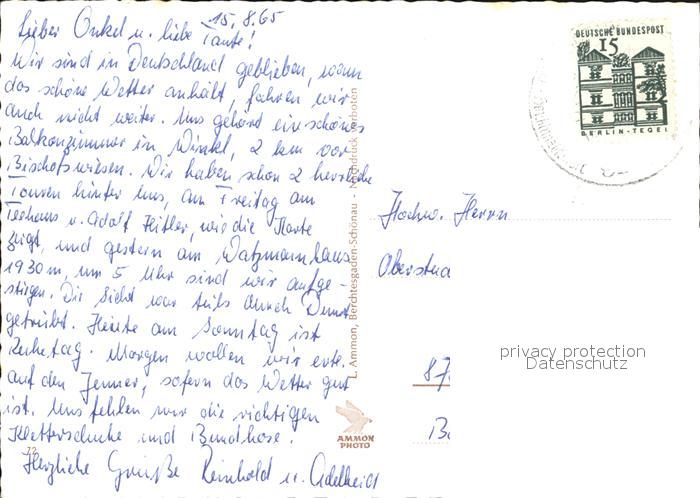 15. 8. 65
Lieber Onkel u. liebe Tante!
Wir sind in Deutschland geblieben, wenn
das schöne Wetter anhält, fahren wir
auch nicht weiter. Uns gehört ein schönes
Balkonzimmer in Winkl, 2 km vor
Bischofswiesen. Wir haben schon 2 herrliche
Touren hinter uns, am Freitag am
Teehaus v. Adolf Hitler, wie die Karte
zeigt, und gestern am Watzmannhaus
1930 m, um 5 Uhr sind wir aufge-
stiegen. Die Sicht war teils durch Dunst
getrübt. Heute am Sonntag ist
Ruhetag. Morgen wollen wir evtl.
auf den Jenner, sofern das Wetter gut
ist. Uns fehlen nur die richtigen
Kletterschuhe und Bundhose.
Herzliche Grüße Reinhold u. Adelheid
L. Ammon, Berchtesgaden-Schönau - Nachdruck verboten
AMMON
PHOTO
DEUTSCHE BUNDESPOST
15
BERLIN-TEGEL
Hochw. Herrn
Oberstu
87
privacy protection
Datenschutz